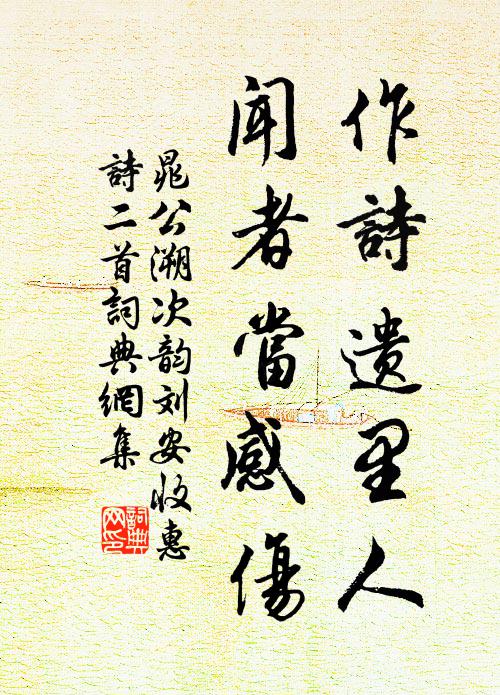 作詩遗里人
聞者當感傷
晁公溯次韵刘安收惠
詩二首詞典網集
詞典
网印